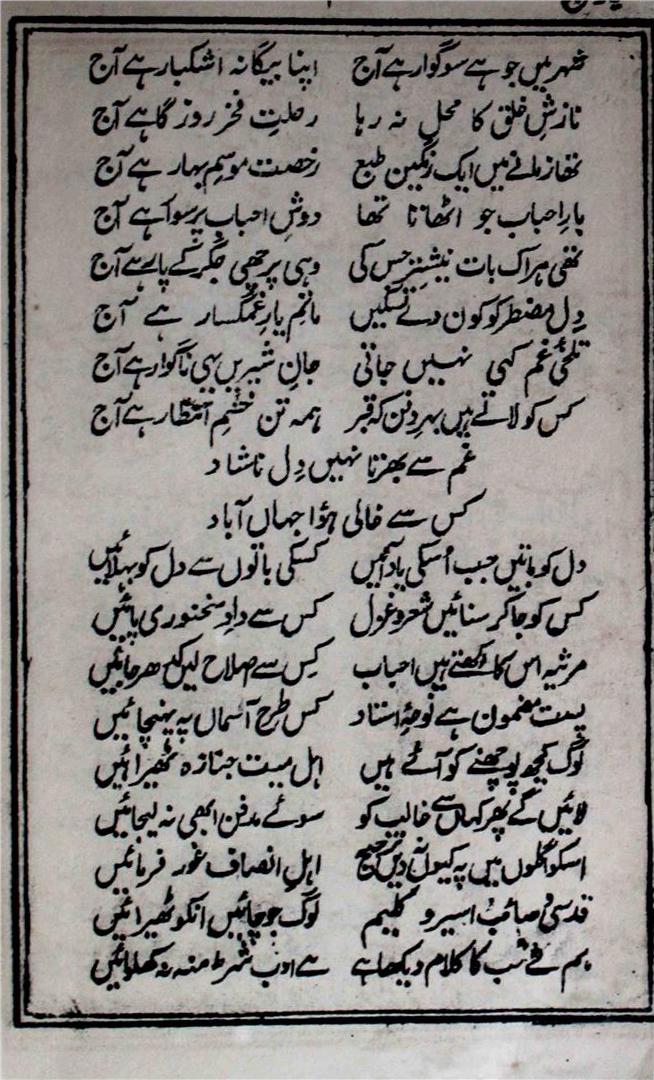 شہر میں جو ہے سوگوار ہے آج اپنا بیگانہ اشکبار ہے آج
نازشِ خلق کا محل نہ رہا رحلتِ فخر روزگا ہے آج
تھا زمانے میں ایک رنگین طبع رخصت موسمِ بہار ہے آج
بارِ احباب جو اٹھاتا تھا دوشِ احباب پر سوا ہے آج
تھی ہر اک بات نیشتر جس کی وہی برچھی جگر کے پار ہے آج
دلِ مضطر کو کون دے تسکیں ماتم یارِ غمگسار ہے آج
تلخئ غم کہی نہیں جاتی جانِ شیریں بھی ناگوار ہے آج
کس کو لاتے ہیں بہرِ دفن کہ قبر ہمہ تن چشمِ انتظار ہے آج
غم سے بھرتا نہیں دِل ناشاد
کس سے خالی ہؤا جہاں آباد
دل کو باتیں جب اُسکی یاد آئیں کسکی باتوں سے دل کو بہلائیں
کس کو جا کر سنائیں شعر و غزل کس سے دادِ سخنوری پائیں
مرثیہ اس کا لکھتے ہیں احباب کِس سے اصلاح لیں کدھر جائیں
پست مضمون ہے نوحۂ استاد کس طرح آسماں پہ پہنچائیں
لوگ کچھ پوچھنے کو آئے ہیں اہل میت جنازہ ٹھیرائیں
لائیں گے پھر کہاں سے غالب کو سوئے مدفن ابھی نہ لیجائیں
اسکو اگلوں میں پہ کیوں نہ دیں ترجیح اہلِ انصاف غور فرمائیں
قدسی و صائب و اسیر و کلیم لوگ جو چاہیں انکو ٹھیرائیں
ہم نے سب کا کلام دیکھا ہے ہے ادب شرط منہ نہ کھلوائیں